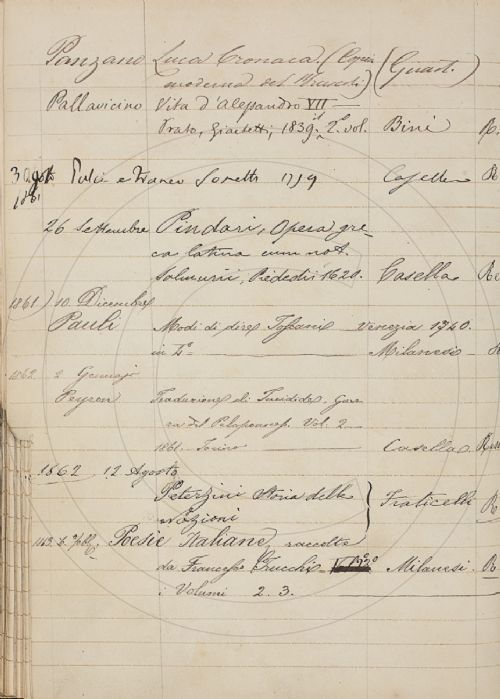 Panzano Luca Cronaca. (Copia (Guast.)
moderna del
Pallavicino Vita d'Alessandro VII
Prato, Giachetti, 1839. 2 vol. Bini R.
3 Agosto Pulci e Franco Sonetti 1759 Casella R
1861
26 Settembre Pindari, Opera gre-
ca latina cum not.
Salmurii, Piededii 1620. Casella R
1861) 10 Dicembre
Pauli Modi di dire Toscani Venezia 1740.
in 4º Milanesi R
1862 2 Gennajo
Peyron Traduzione di Tucidide. Guer
ra del Peloponneso Vol. 2
1861. Torino Casella R
1862 12 Agosto
Peterzini Storia delle } Fraticelli R
Nozioni
Poesie Italiane, raccolte
da Francesco Trucchi Milanesi. R
i Volumi 2. 3.